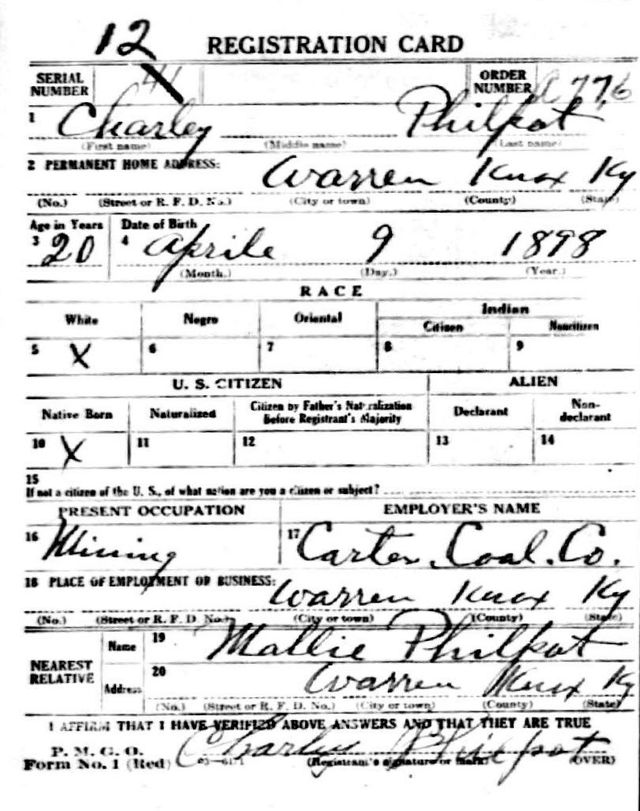 12 REGISTRATION CARD
SERIAL NUMBER 41 ORDER NUMBER A 776
1 Charley Philpot
(First name) (Middle name) (Last name)
2 PERMANENT HOME ADDRESS: Warren Knox Ky
(No.) (Street or R. F. D. No.) (City or town) (County) (State)
Age in Years Date of Birth
3 20 4 Aprile 9 1898
(Month.) (Day.) (Year.)
RACE
White Negro Oriental Indian
Citizen Noncitizen
5 X 6 7 8 9
U. S. CITIZEN ALIEN
Native Born Naturalized Citizen by Father's Naturalization Before Registrant's Majority Declarant Non-declarant
10 X 11 12 13 14
15
If not a citizen of the U. S., of what nation are you a citizen or subject?
PRESENT OCCUPATION EMPLOYER'S NAME
16 Mining 17 Carter. Coal. Co.
18 PLACE OF EMPLOYMENT OR BUSINESS: Warren Knox Ky
(No.) (Street or R. F. D. No.) (City or town) (County) (State)
NEAREST RELATIVE Name 19 Mallie Philpot
Address 20 Warren Knox Ky
(No.) (Street or R. F. D. No.) (City or town) (County) (State)
I AFFIRM THAT I HAVE VERIFIED ABOVE ANSWERS AND THAT THEY ARE TRUE
P. M. G. O.
Form No. 1 (Red) Charley Philpot (Registrant's signature or mark) (OVER)